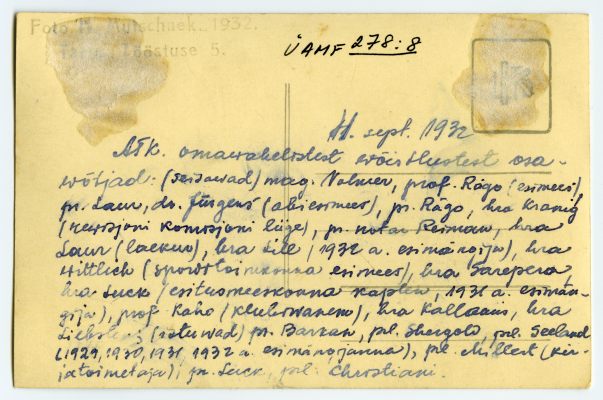 Foto 1932.
Tartu, Tööstuse 5.
ÜAMF 278:8
11. sept. 1932
ATK. omawahelistest wõistlustest osa-
wõtjad: (seisawad) mag. Nolmer, prof. Rägo (esimees)
pr. Laur, dr. Jürgens (abiesimees), pr. Rägo, hra Kranig
(rewisjoni komisjoni liige), pr. notar Reiman, hra
Laur (laekur), hra Lill (1932 a. esimängija), hra
Wittlich (sporditoimkonna esimees), hra Sarepera
hra Luck (esitusmeeskonna kapten, 1931 a. esimän-
gija), prof. Raho (klubiwanem), hra Kallaam, hra
(istuwad) pr. Barzan, prl. Shergold, prl. Seeland
(1929, 1930, 1931, 1932 a. esimängijanna), prl. Millert (kir-
jatoimetaja), pr. Luck, prl. Christiani.